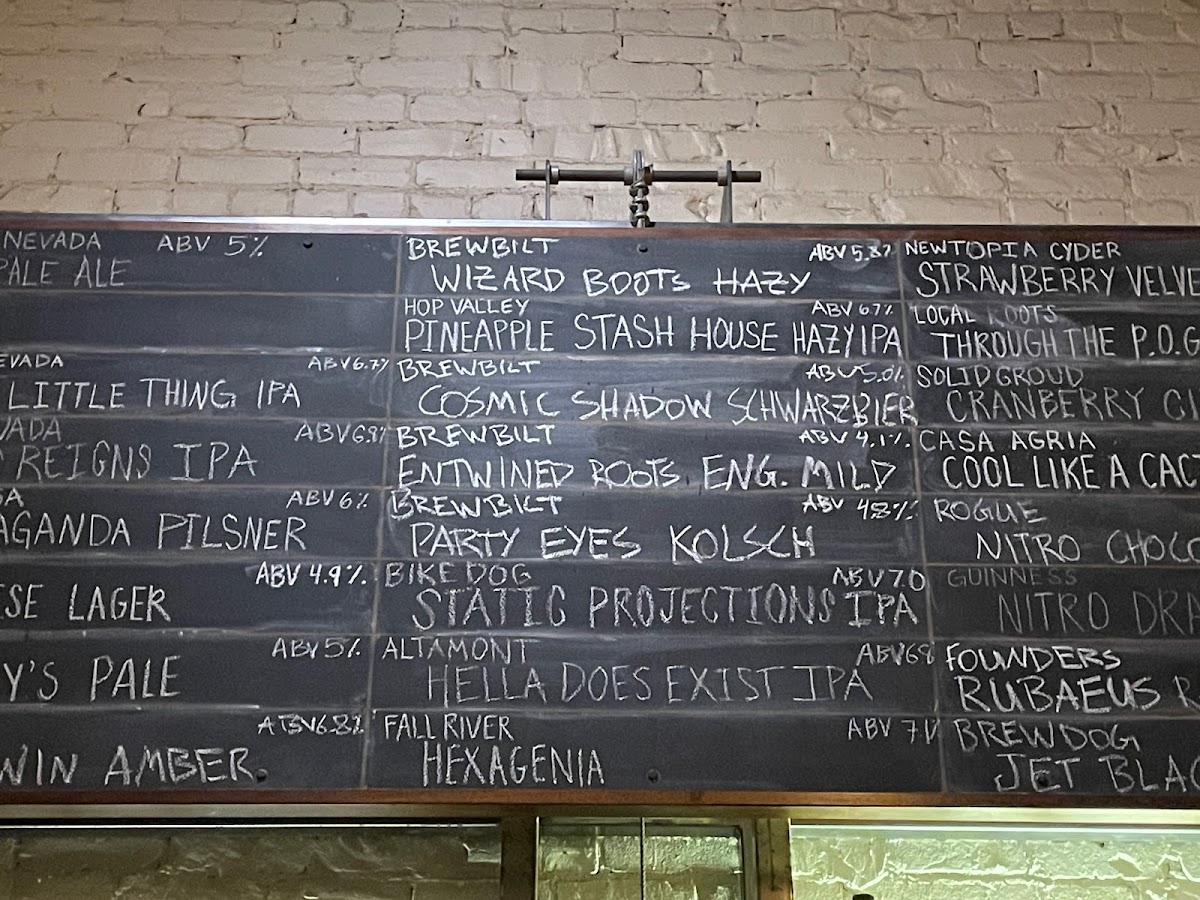 NEVADA ABV 5%
PALE ALE
EVADA ABV 6.7%
LITTLE THING IPA
VADA ABV 6.9%
REIGNS IPA
SA ABV 6%
AGANDA PILSNER
ABV 4.9%
ESE LAGER
ABV 5%
Y'S PALE
ABV 6.8%
WIN AMBER
BREWBILT ABV 5.8%
WIZARD BOOTS HAZY
HOP VALLEY ABV 6.7%
PINEAPPLE STASH HOUSE HAZY IPA
BREWBILT ABV 5.0%
COSMIC SHADOW SCHWARZBIER
BREWBILT ABV 4.1%
ENTWINED ROOTS ENG. MILD
BREWBILT ABV 4.8%
PARTY EYES KOLSCH
BIKE DOG ABV 7.0
STATIC PROJECTIONS IPA
ALTAMONT ABV 6.8
HELLA DOES EXIST IPA
FALL RIVER ABV 7.1
HEXAGENIA
NEWTOPIA CYDER
STRAWBERRY VELVE
LOCAL ROOTS
THROUGH THE P.O.G
SOLID GROUD
CRANBERRY
CASA AGRIA
COOL LIKE A CACT
ROGUE
NITRO CHOCO
GUINNESS
NITRO DR
FOUNDERS
RUBAEUS R
BREWDOG
JET BLAC